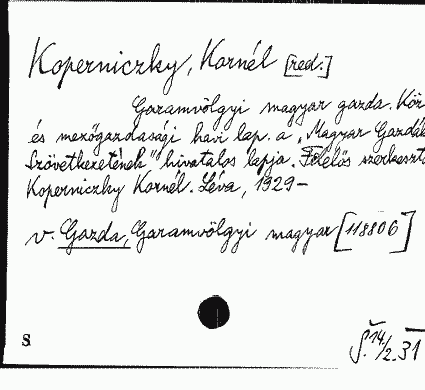 Koperniczky, Kornél [red.]
Garamvölgyi magyar gazda. Köz
és mezőgazdasági havi lap. a „Magyar Gazdák
Szövetkezetének" hivatalos lapja. Felelős szerkesztő
Koperniczky Kornél. Léva, 1929-
v. Gazda, Garamvölgyi magyar [118806]
S